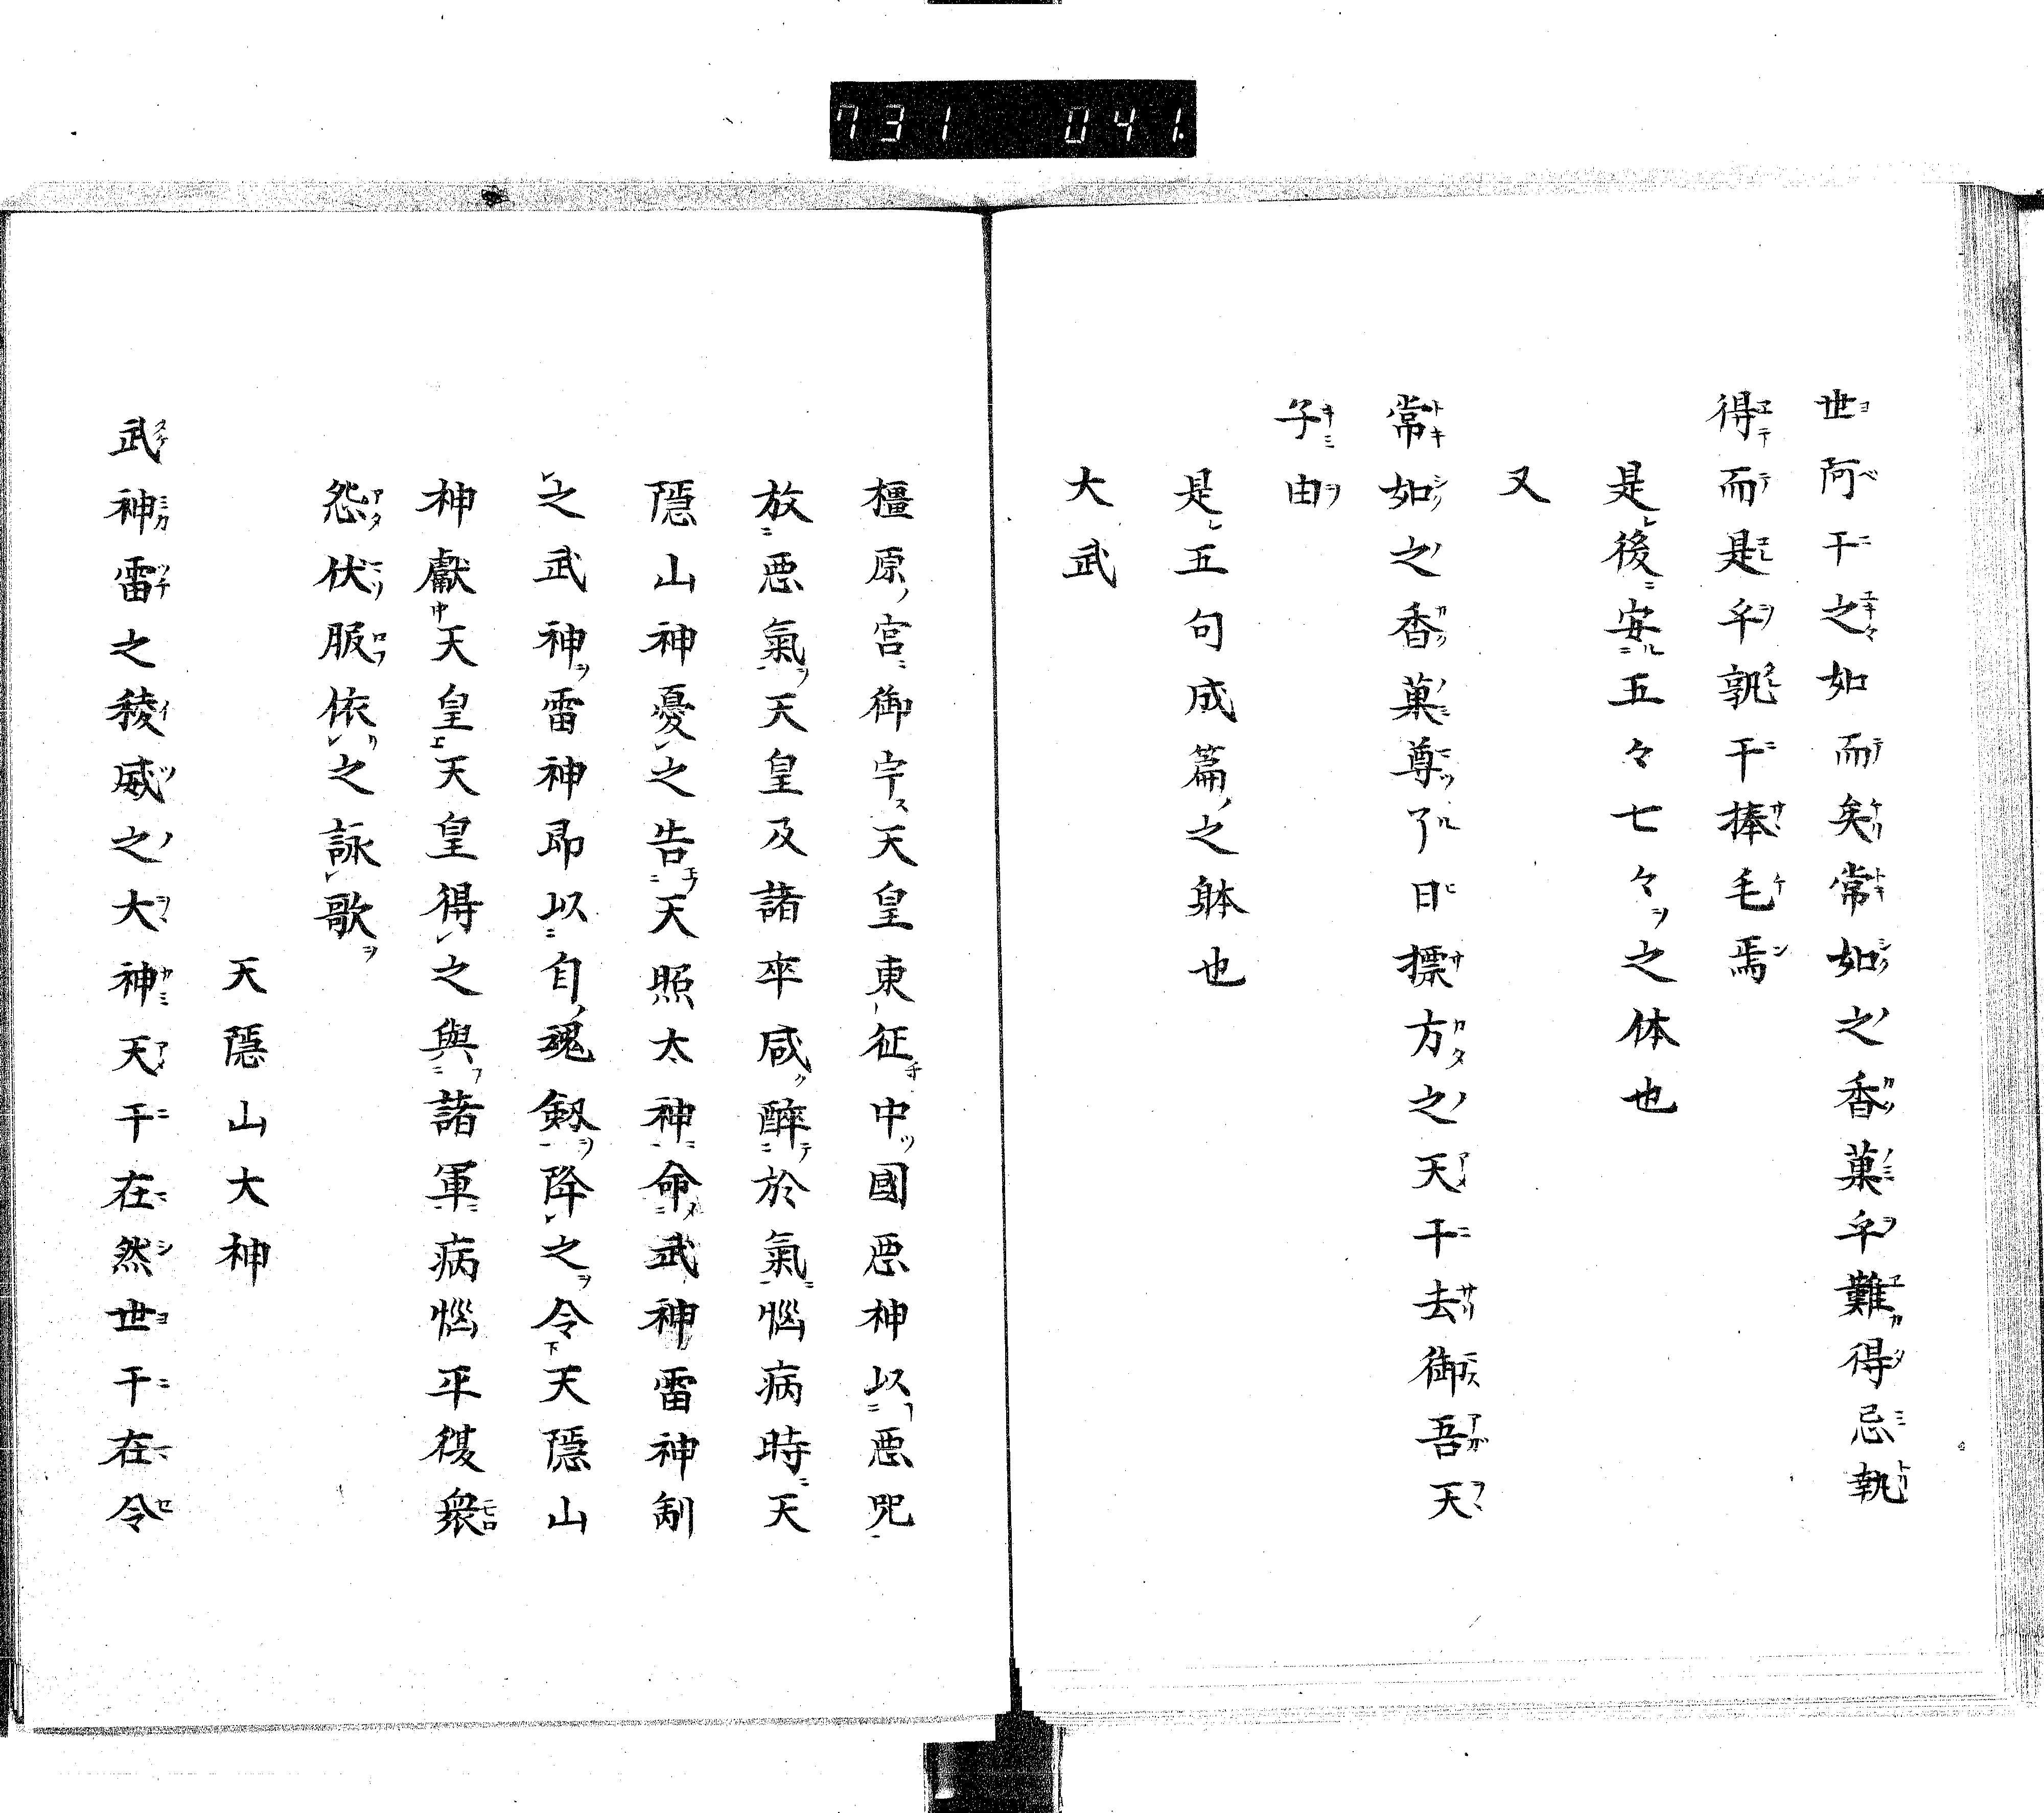 731 041.
世阿干之如而矣常如之香菓乎難得忌執
得而是乎孰干捧毛焉
是後安五々七々之体也
又
常如之香菓尊了日摽方之天干去御吾天
子由
是五句成篇之躰也
大武
橿原宮御宇天皇東征中國悪神以悪咒
放悪氣天皇及諸卒咸醉於氣惱病時天
隱山神憂之告天照太神命武神雷神制
之武神雷神即以自魂劔降之令天隱山
神獻天皇天皇得之與諸軍病惱平復衆
怨伏服依之詠歌
天隱山大神
武神雷之稜威之大神天干在然世干在令